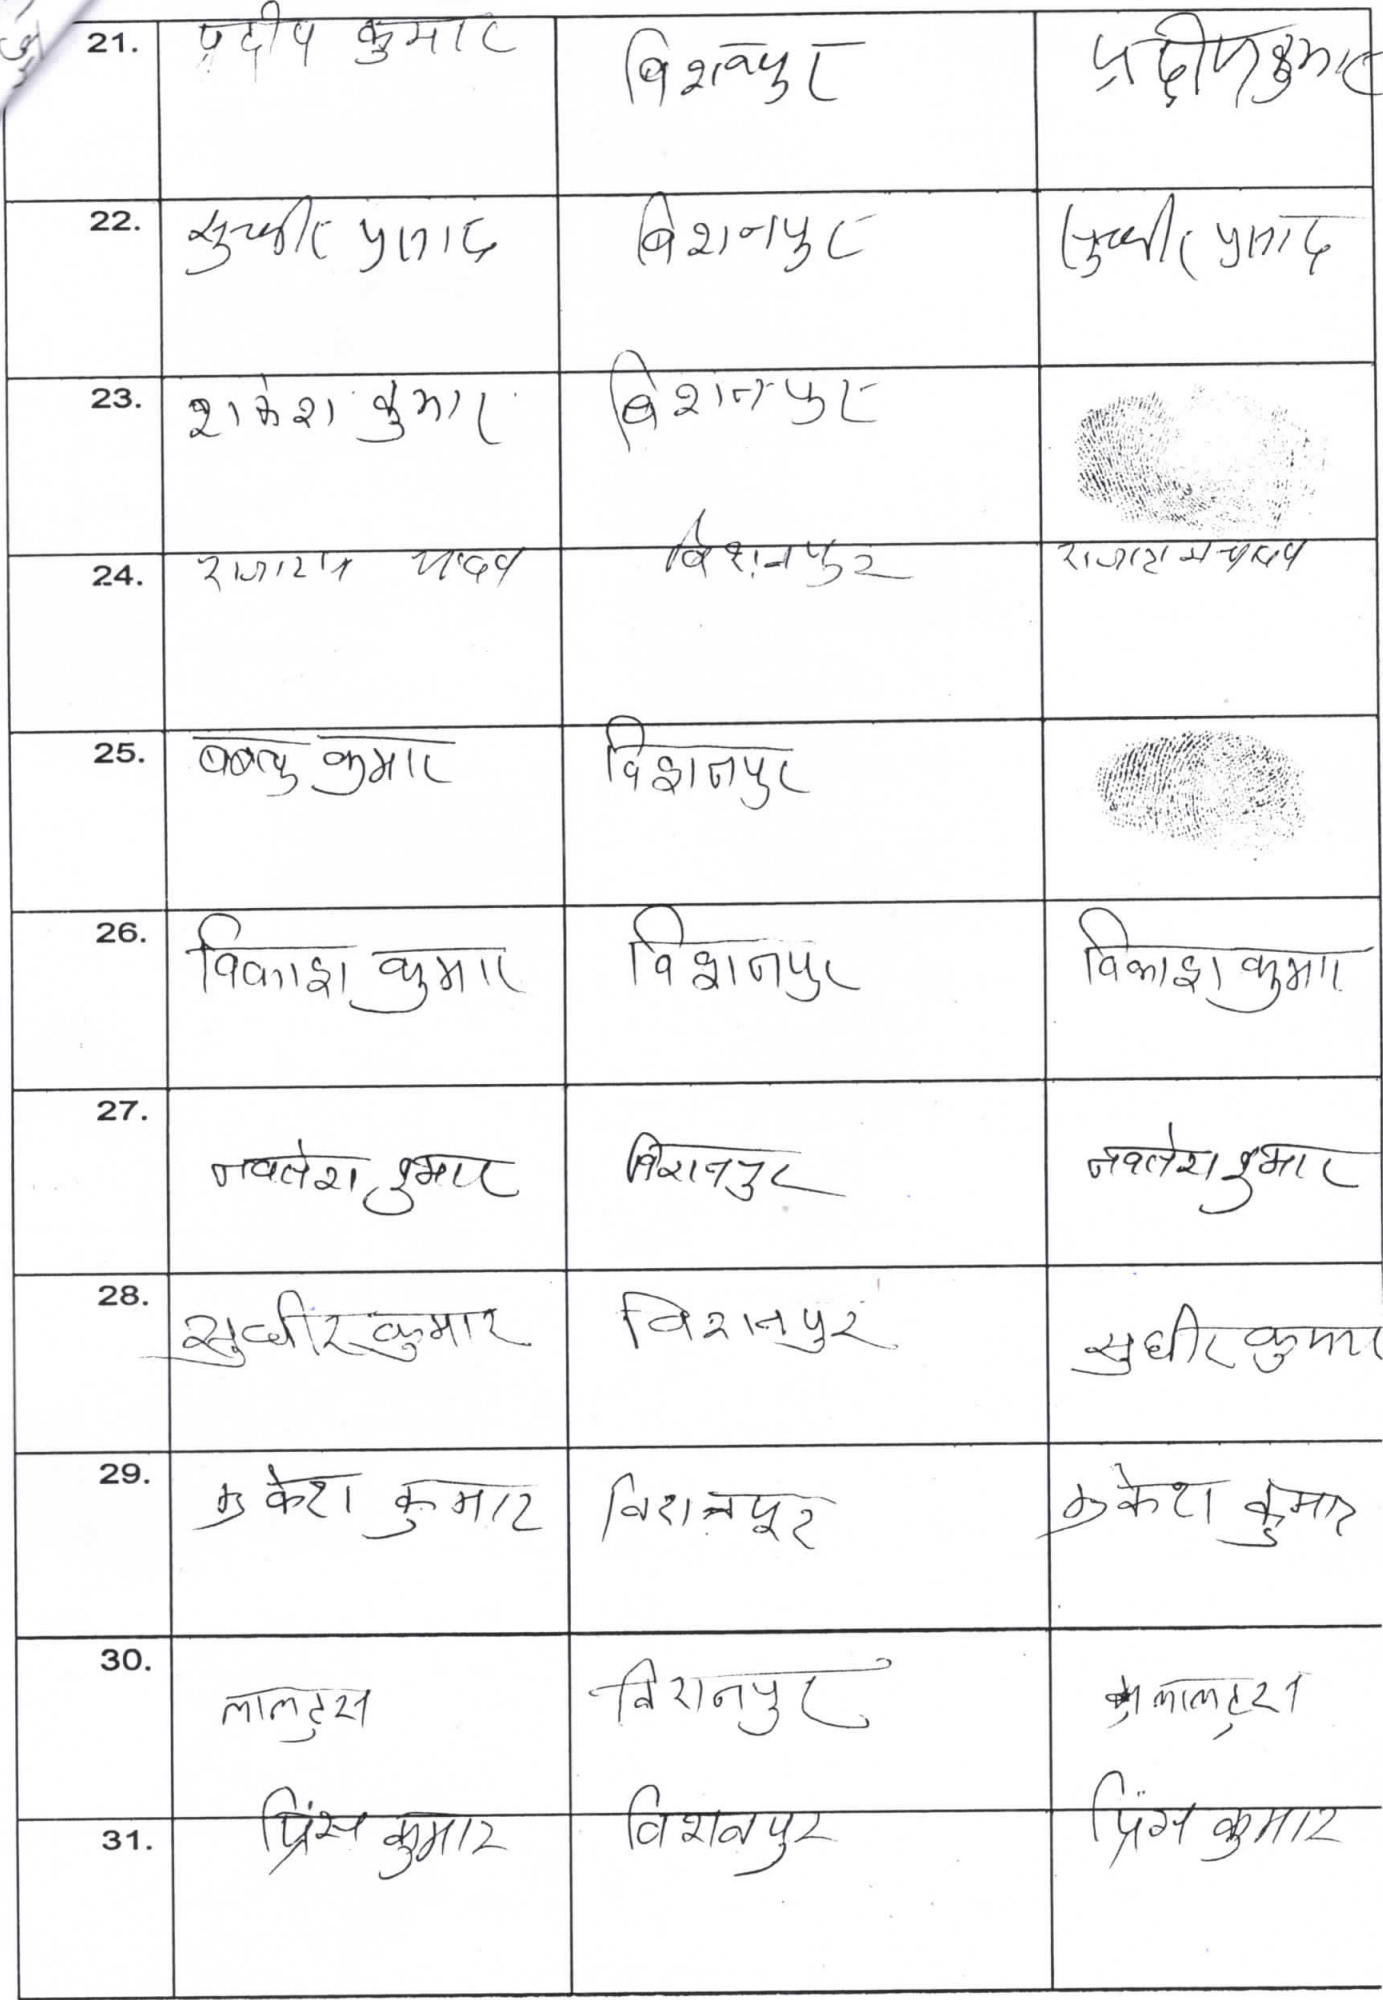 21. प्रदीप कुमार बिशनपुर प्रदीप कुमार
22. सुधीर प्रसाद बिशनपुर सुधीर प्रसाद
23. राकेश कुमार बिशनपुर
24. राजाराम यादव बिशनपुर राजाराम यादव
25. बबलु कुमार विशनपुर
26. विकाश कुमार विशनपुर विकाश कुमार
27. नवलेश कुमार बिशनपुर नवलेश कुमार
28. सुधीर कुमार विशनपुर सुधीर कुमार
29. मुकेश कुमार विशनपूर मुकेश कुमार
30. विशनपुर
31. प्रिंस कुमार विशनपुर प्रिंस कुमार